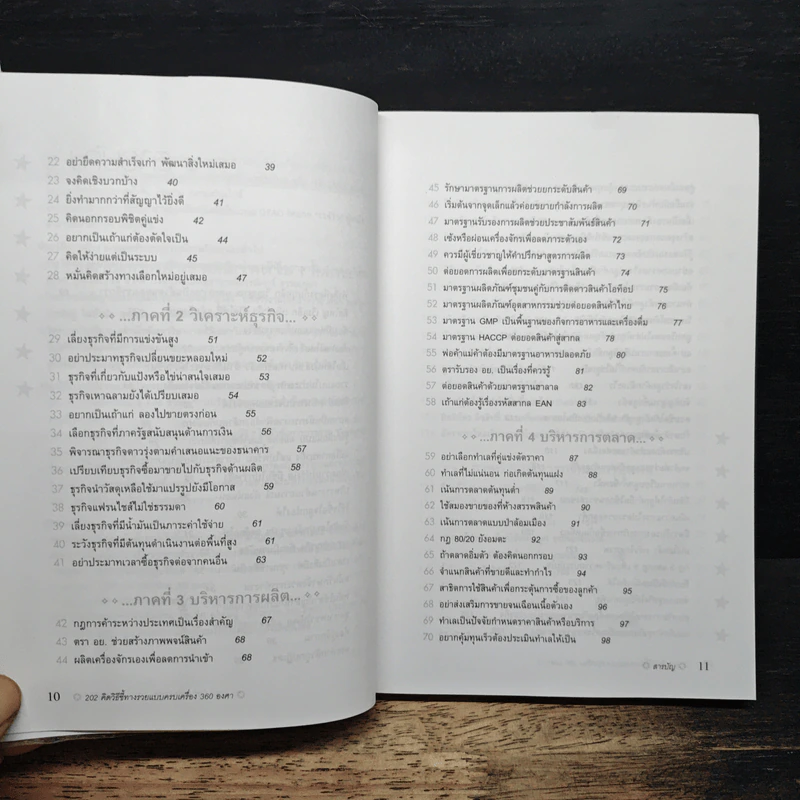 22 อย่ายึดความสำเร็จเก่า พัฒนาสิ่งใหม่เสมอ 39
23 จงคิดเชิงบวกบ้าง 40
24 ยิ่งทำมากกว่าที่สัญญาไว้ยิ่งดี 41
25 คิดนอกกรอบพิชิตคู่แข่ง 42
26 อยากเป็นเถ้าแก่ต้องตัดใจเป็น 44
27 คิดให้ง่ายแต่เป็นระบบ 45
28 หมั่นคิดสร้างทางเลือกใหม่อยู่เสมอ 47
...ภาคที่ 2 วิเคราะห์ธุรกิจ...
29 เลี่ยงธุรกิจที่มีการแข่งขันสูง 51
30 อย่าประมาทธุรกิจเปลี่ยนขยะหลอมใหม่ 52
31 ธุรกิจที่เกี่ยวกับแป้งหรือไข่น่าสนใจเสมอ 53
32 ธุรกิจเหาฉลามยังได้เปรียบเสมอ 54
33 อยากเป็นเถ้าแก่ ลองไปขายตรงก่อน 55
34 เลือกธุรกิจที่ภาครัฐสนับสนุนด้านการเงิน 56
35 พิจารณาธุรกิจดาวรุ่งตามคำเสนอแนะของธนาคาร 57
36 เปรียบเทียบธุรกิจซื้อมาขายไปกับธุรกิจด้านผลิต 58
37 ธุรกิจนำวัสดุเหลือใช้มาแปรรูปยังมีโอกาส 59
38 ธุรกิจแฟรนไชส์ไม่ใช่ธรรมดา 60
39 เลี่ยงธุรกิจที่มีน้ำมันเป็นภาระค่าใช้จ่าย 61
40 ระวังธุรกิจที่มีต้นทุนดำเนินงานต่อพื้นที่สูง 61
41 อย่าประมาทเวลาซื้อธุรกิจต่อจากคนอื่น 63
...ภาคที่ 3 บริหารการผลิต...
42 กฎการค้าระหว่างประเทศเป็นเรื่องสำคัญ 67
43 ตรา อย. ช่วยสร้างภาพพจน์สินค้า 68
44 ผลิตเครื่องจักรเองเพื่อลดการนำเข้า 68
10 202 คิดวิธีชี้ทางรวยแบบครบเครื่อง 360 องศา
45 รักษามาตรฐานการผลิตช่วยยกระดับสินค้า 69
46 เริ่มต้นจากจุดเล็กแล้วค่อยขยายกำลังการผลิต 70
47 มาตรฐานรับรองการผลิตช่วยประชาสัมพันธ์สินค้า 71
48 เช้งหรือผ่อนเครื่องจักรเพื่อลดภาระตัวเอง 72
49 ควรมีผู้เชี่ยวชาญให้คำปรึกษาสูตรการผลิต 73
50 ต่อยอดการผลิตเพื่อยกระดับมาตรฐานสินค้า 74
51 มาตรฐานผลิตภัณฑ์ชุมชนคู่กับการติดดาวสินค้าโอท็อป 75
52 มาตรฐานผลิตภัณฑ์อุตสาหกรรมช่วยต่อยอดสินค้าไทย 76
53 มาตรฐาน GMP เป็นพื้นฐานของกิจการอาหารและเครื่องดื่ม 77
54 มาตรฐาน HACCP ต่อยอดสินค้าสู่สากล 78
55 พ่อค้าแม่ค้าต้องมีมาตรฐานอาหารปลอดภัย 80
56 ตรารับรอง อย. เป็นเรื่องที่ควรรู้ 81
57 ต่อยอดสินค้าด้วยมาตรฐานฮาลาล 82
58 เถ้าแก่ต้องรู้เรื่องรหัสสากล EAN 83
...ภาคที่ 4 บริหารการตลาด...
59 อย่าเลือกทำเลที่คู่แข่งตัดราคา 87
60 ทำเลที่ไม่แน่นอน ก่อเกิดต้นทุนแฝง 88
61 เน้นการตลาดต้นทุนต่ำ 89
62 ใช้สมองขายของที่ห้างสรรพสินค้า 90
63 เน้นการตลาดแบบป่าล้อมเมือง 91
64 กฎ 80/20 ยังอมตะ 92
65 ถ้าตลาดอิ่มตัว ต้องคิดนอกกรอบ 93
66 จำแนกสินค้าที่ขายดีและทำกำไร 94
67 สาธิตการใช้สินค้าเพื่อกระตุ้นการซื้อของลูกค้า 95
68 อย่าส่งเสริมการขายจนเฉือนเนื้อตัวเอง 96
69 ทำเลเป็นปัจจัยกำหนดราคาสินค้าหรือบริการ 97
70 อยากคุ้มทุนเร็วต้องประเมินทำเลให้เป็น 98
สารบัญ 11